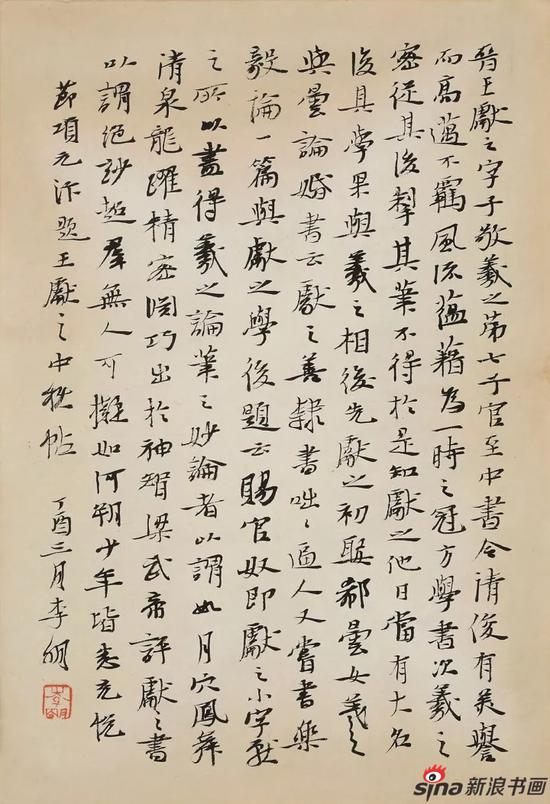 晉王獻之字子敬羲之第七子官至中書令清俊有美譽
而高邁不羈風流蘊藉為一時之冠方學書次羲之
密從其後掣其筆不得於是知獻之他日當有大名
後其學果與羲之相後先獻之初娶郗曇女羲之
與曇論婚書云獻之善隸書咄々逼人又嘗書樂
毅論一篇與獻之學後題云賜官奴即獻之小字獻
之所以盡得羲之論筆之妙論者以謂如丹穴鳳舞
清泉龍躍精密淵巧出於神智梁武帝評獻之書
以謂絕妙超群無人可擬如河朔少年皆悉充悅
節項元汴題王獻之中秋帖 丁酉三月李明
sina新浪书画